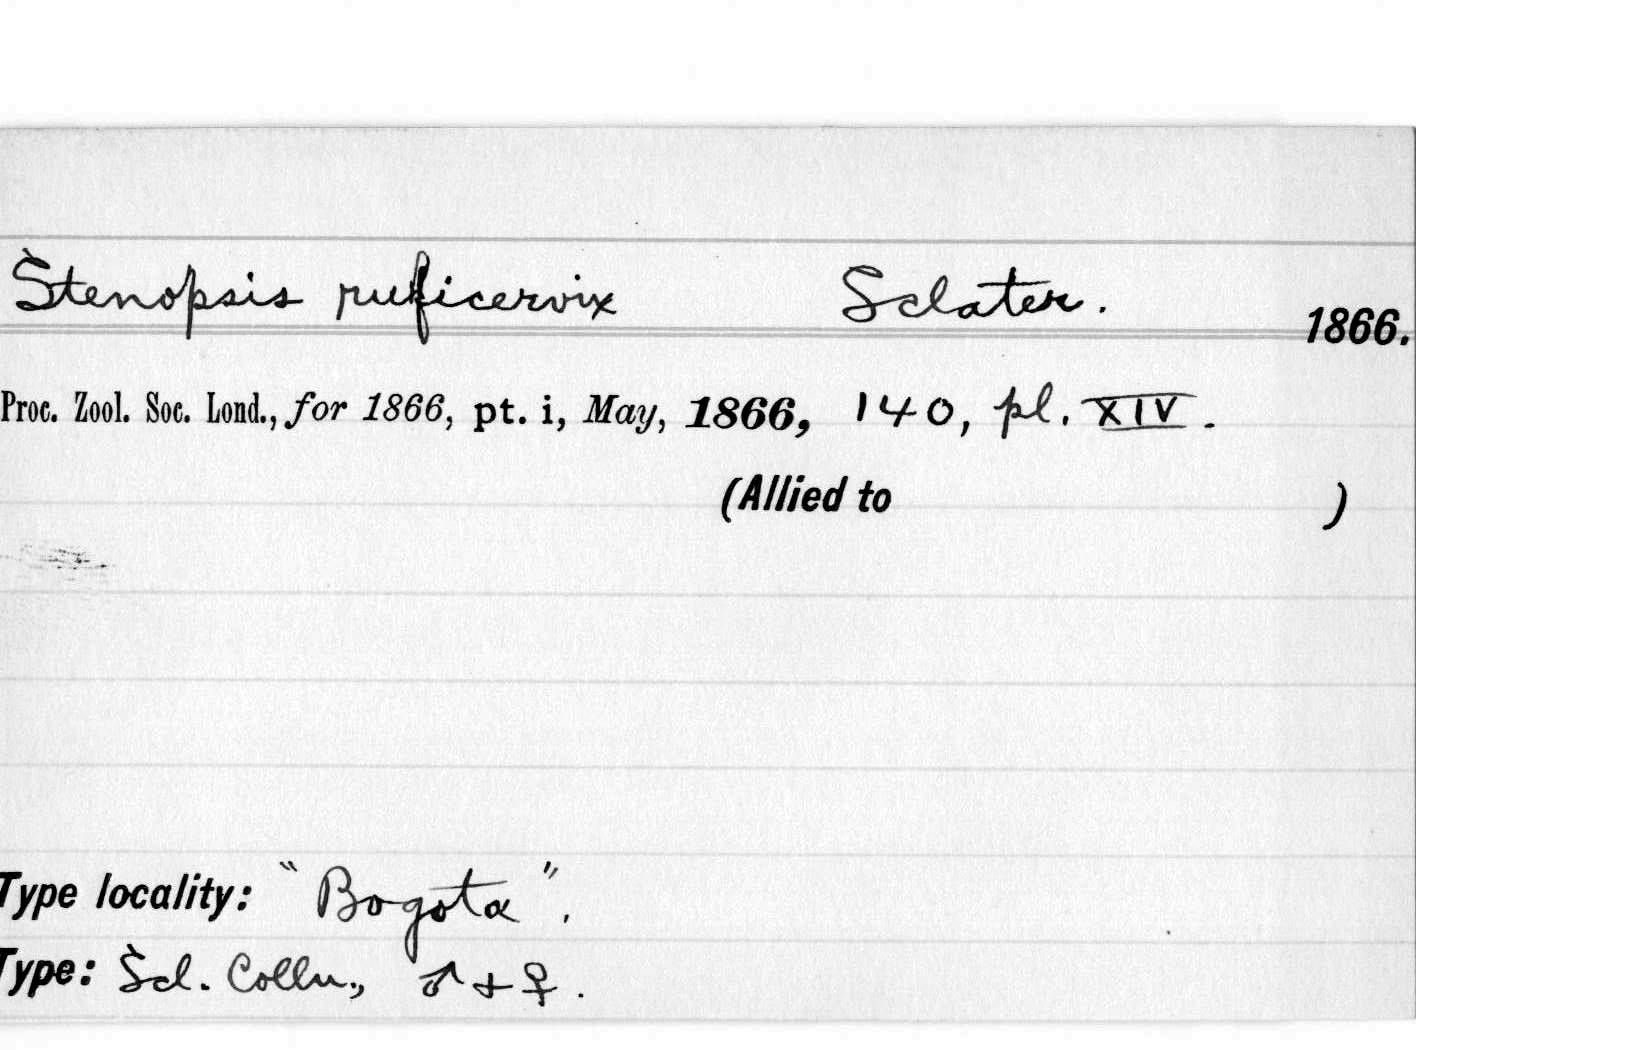 Stenopsis ruficervix Sclater. 1866.
Proc. Zool. Soc. Lond., for 1866, pt. i, May, 1866, 140, pl. XIV.
(Allied to )
Type locality: "Bogota".
Type: Scl. Colln., ♂ + ♀.